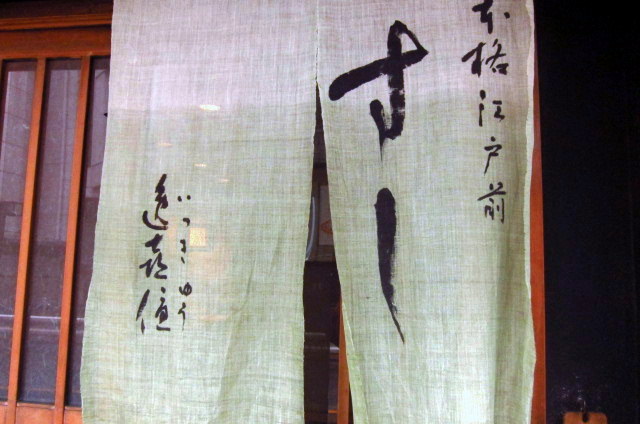 本格江戸前
すし
いつきゆう
逸喜優